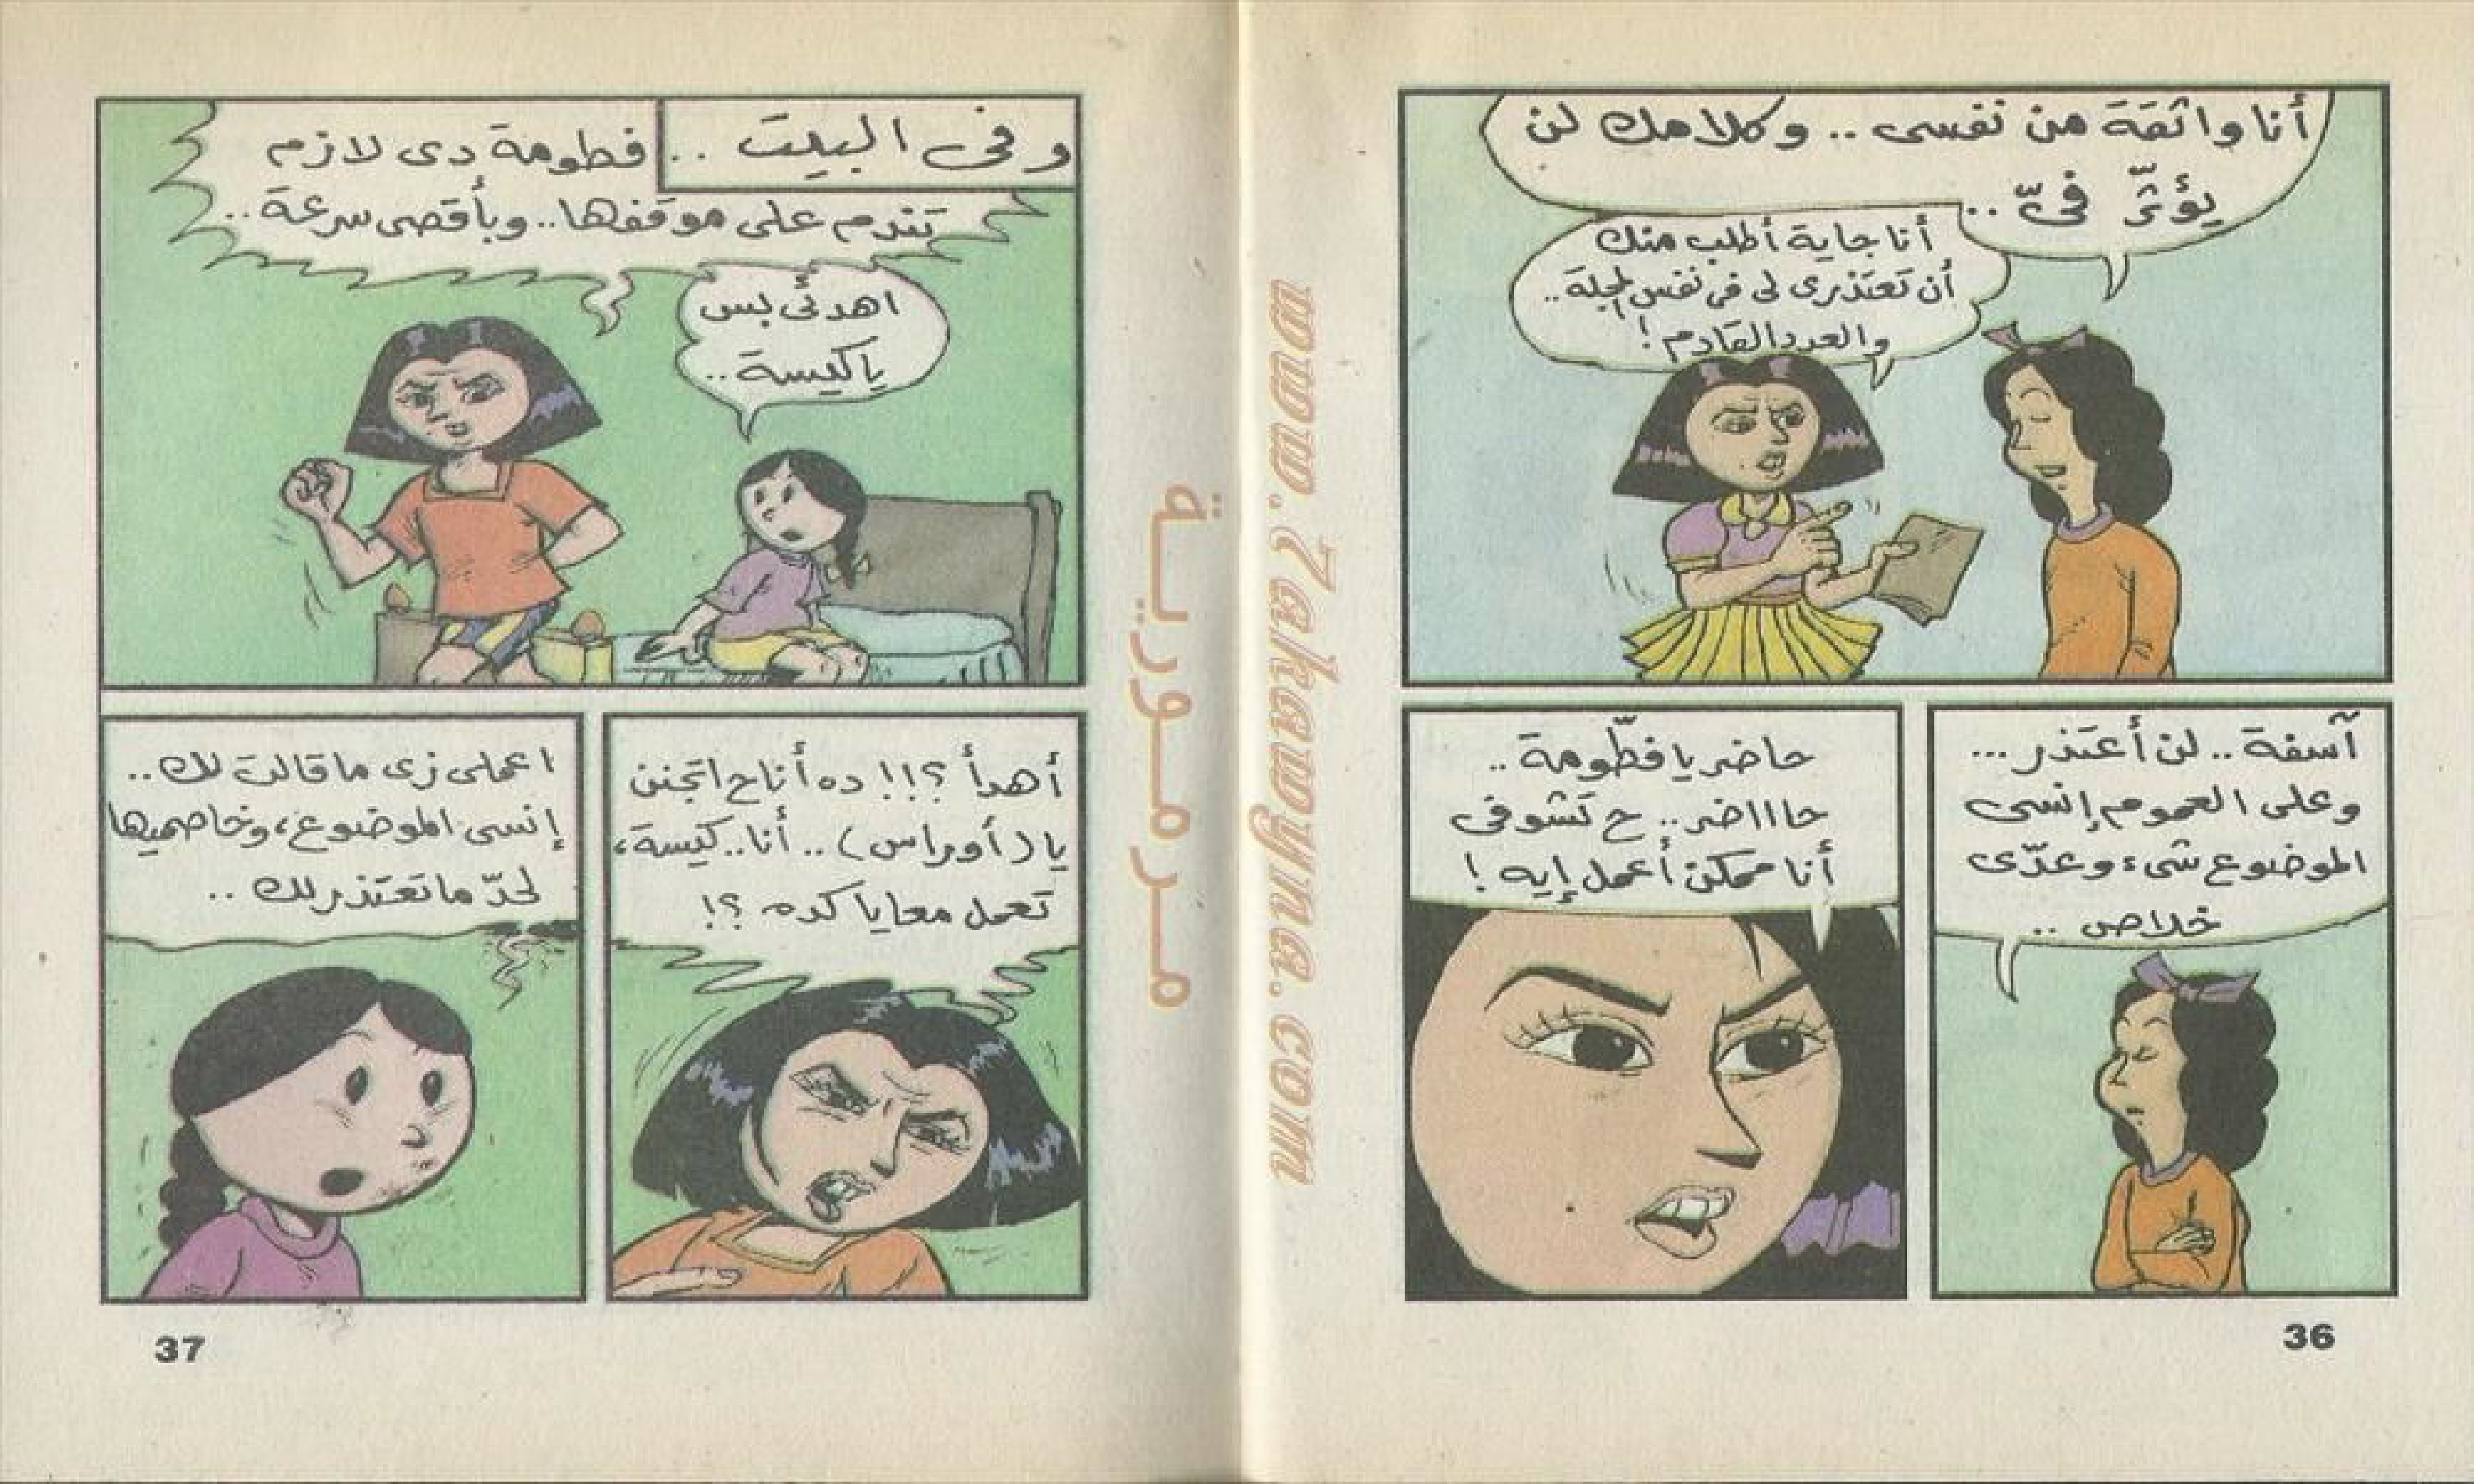 أنا واثقة من نفسى .. وكلامك لن
يؤثّر فىّ ..
أنا جاية أطلب منك
أن تعتذرى لى فى نفس المجلة ..
والعدد القادم !
آسفة .. لن أعتذر ...
وعلى العموم إنسى
الموضوع شىء وعدّى
خلاص ..
حاضر يا فطّومة ..
حاااضر .. ح تشوفى
أنا ممكن أعمل إيه !
36
وفى البيت ..
فطومة دى لازم
تندم على موقفها .. وبأقصى سرعة ..
اهدئى بس
يا كيسة ..
أهدأ ؟!! ده أنا ح اتجنن
يا (أوراس) .. أنا .. كيسة،
تعمل معايا كده ؟!
اعملى زى ما قالت لك ..
إنسى الموضوع، وخاصميها
لحدّ ما تعتذر لك ..
37
مرمورية
www.Zakawyna.com